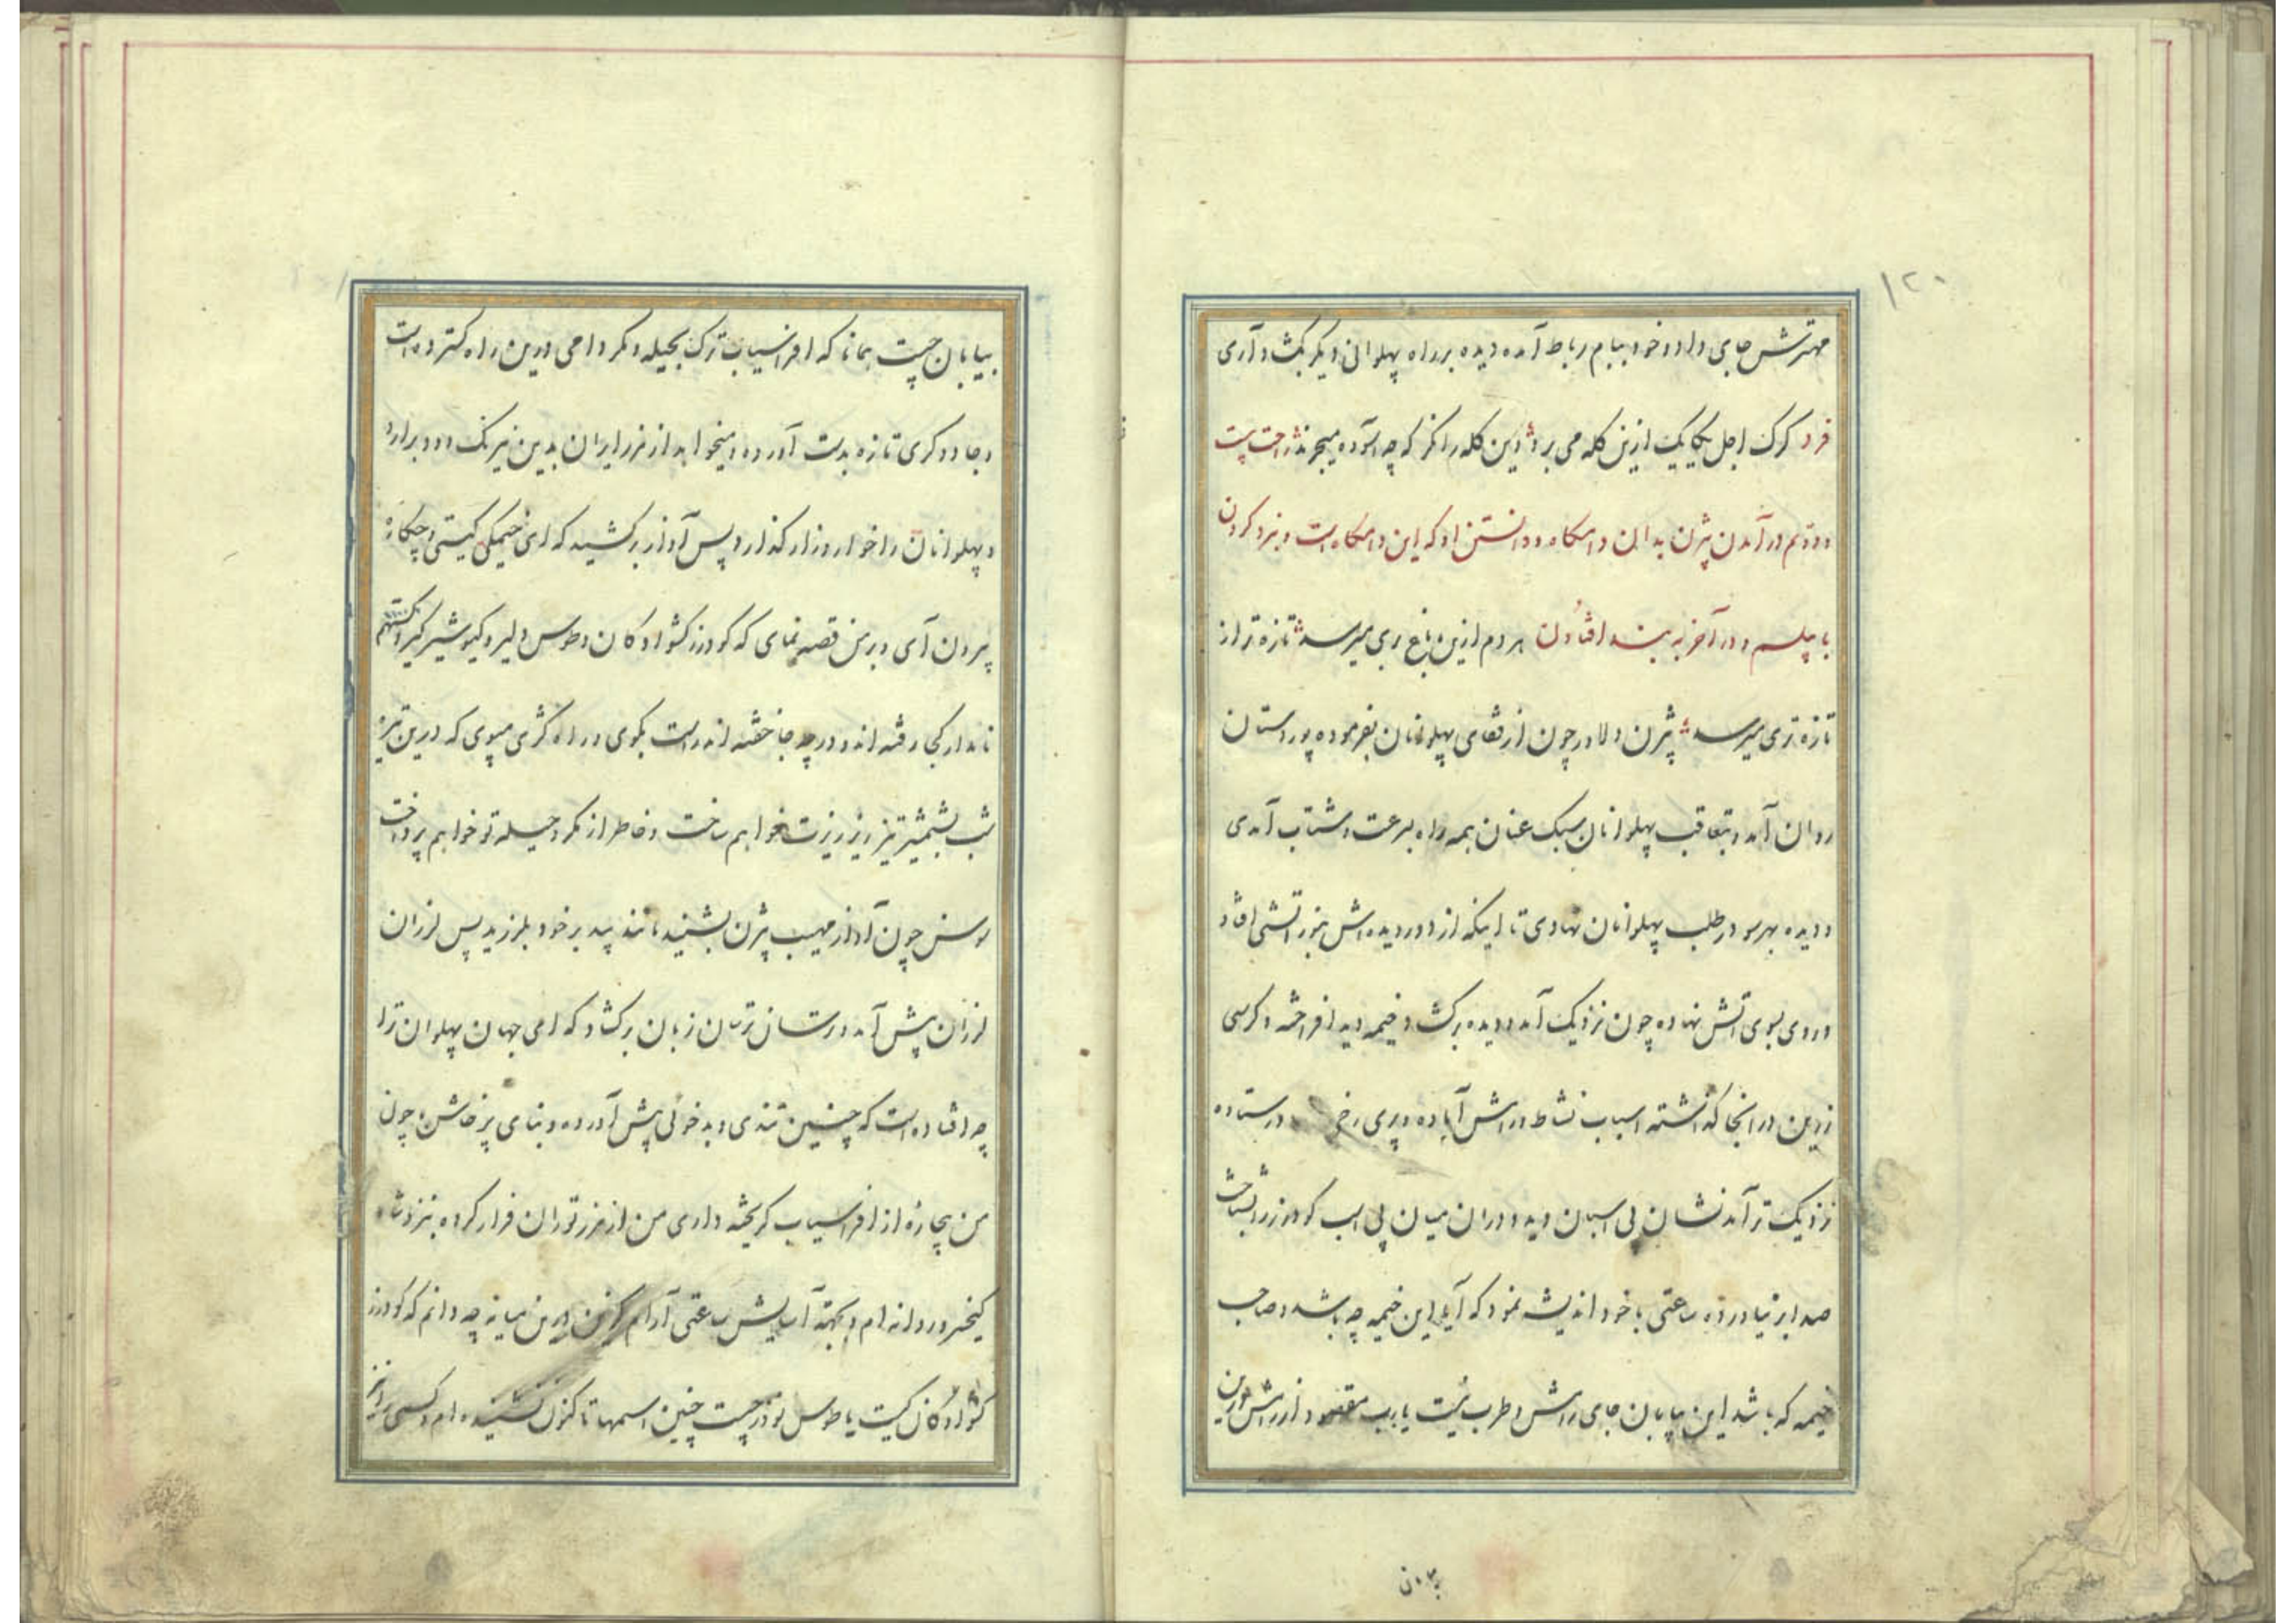 ۱۲۰
مهترش جای داد و خود ببام رباط آمده دیده بر راه پهلوانی دیگر بگشاد آری
فرد کرک اجل یکایک ازین کله می برد وین کله را نکر که چه آسوده میچرند راحت بیست
و دویم در آمدن بیژن بدان دامکاه و دانستن او که این دامکاه است و نبرد کردن
با پیلسم و در آخر به بند افتادن هر دم ازین باغ بری میرسد تازه تر از
تازه تری میرسد بیژن دلاور چون از قفای پهلوانان بفرموده پور دستان
روان آمد و بتعاقب پهلوانان سبک عنان همه راه بسرعت و شتاب آمدی
و دیده بهر سو در طلب پهلوانان نهادی تا اینکه از دور دیده اش بنور آتشی افتاد
و روی بسوی آتش نهاده چون نزدیک آمد و دیده برکشاد خیمه دید افراخته و کرسی
زرین در آنجا گذاشته اسباب نشاط و رامش آماده و پری رخی در ستاده
نزدیک تر آمد نشان پی اسبان دید و در آن میان پی اسب کودرز را شناخت
صدا بر نیاورده ساعتی با خود اندیشه نمود که آیا این خیمه چه باشد و صاحب
خیمه که باشد این بیابان جای رامش و طرب نیست یا رب مقصود از رامش درین
بیابان چیست همانا که افراسیاب ترک بحیله و مکر دامی درین راه کسترده است
و جادوکری تازه بدست آورده و میخواهد از مرز ایران بدین نیرنک دود برارد
و پهلوانان را خوار و زار گذارد پس آواز برکشید که ای خیمکی کیستی و چکاره
بیرون آی و بر من قصه نمای که کودرز کشوادکان و طوس دلیر و کیو شیرکیر و کستهم
نامدار کجا رفته اند و در چه جا خفته اند راست بکوی و راه کژی مپوی که درین تیره
شب بشمشیر تیز ریز ریزت خواهم ساخت و خاطر از مکر و حیله تو خواهم پرداخت
سوسن چون آواز مهیب بیژن بشنید مانند بید بر خود بلرزید پس لرزان
لرزان پیش آمد و رستان ترسان زبان برکشاد که ای جهان پهلوان ترا
چه افتاده است که چنین تندی و بدخوئی پیش آورده و بنای پرخاش چون
من بیچاره از افراسیاب کریخته داری من از مرز توران فرار کرده بنزد شاه
کیخسرو روانه ام و بجهته آسایش ساعتی آرام درین میانه چه دانم که کودرز
کشوادکان کیست یا طوس نوذر چیست چنین اسمها تا کنون نشنیده ام و کسی را نیز
بیرون